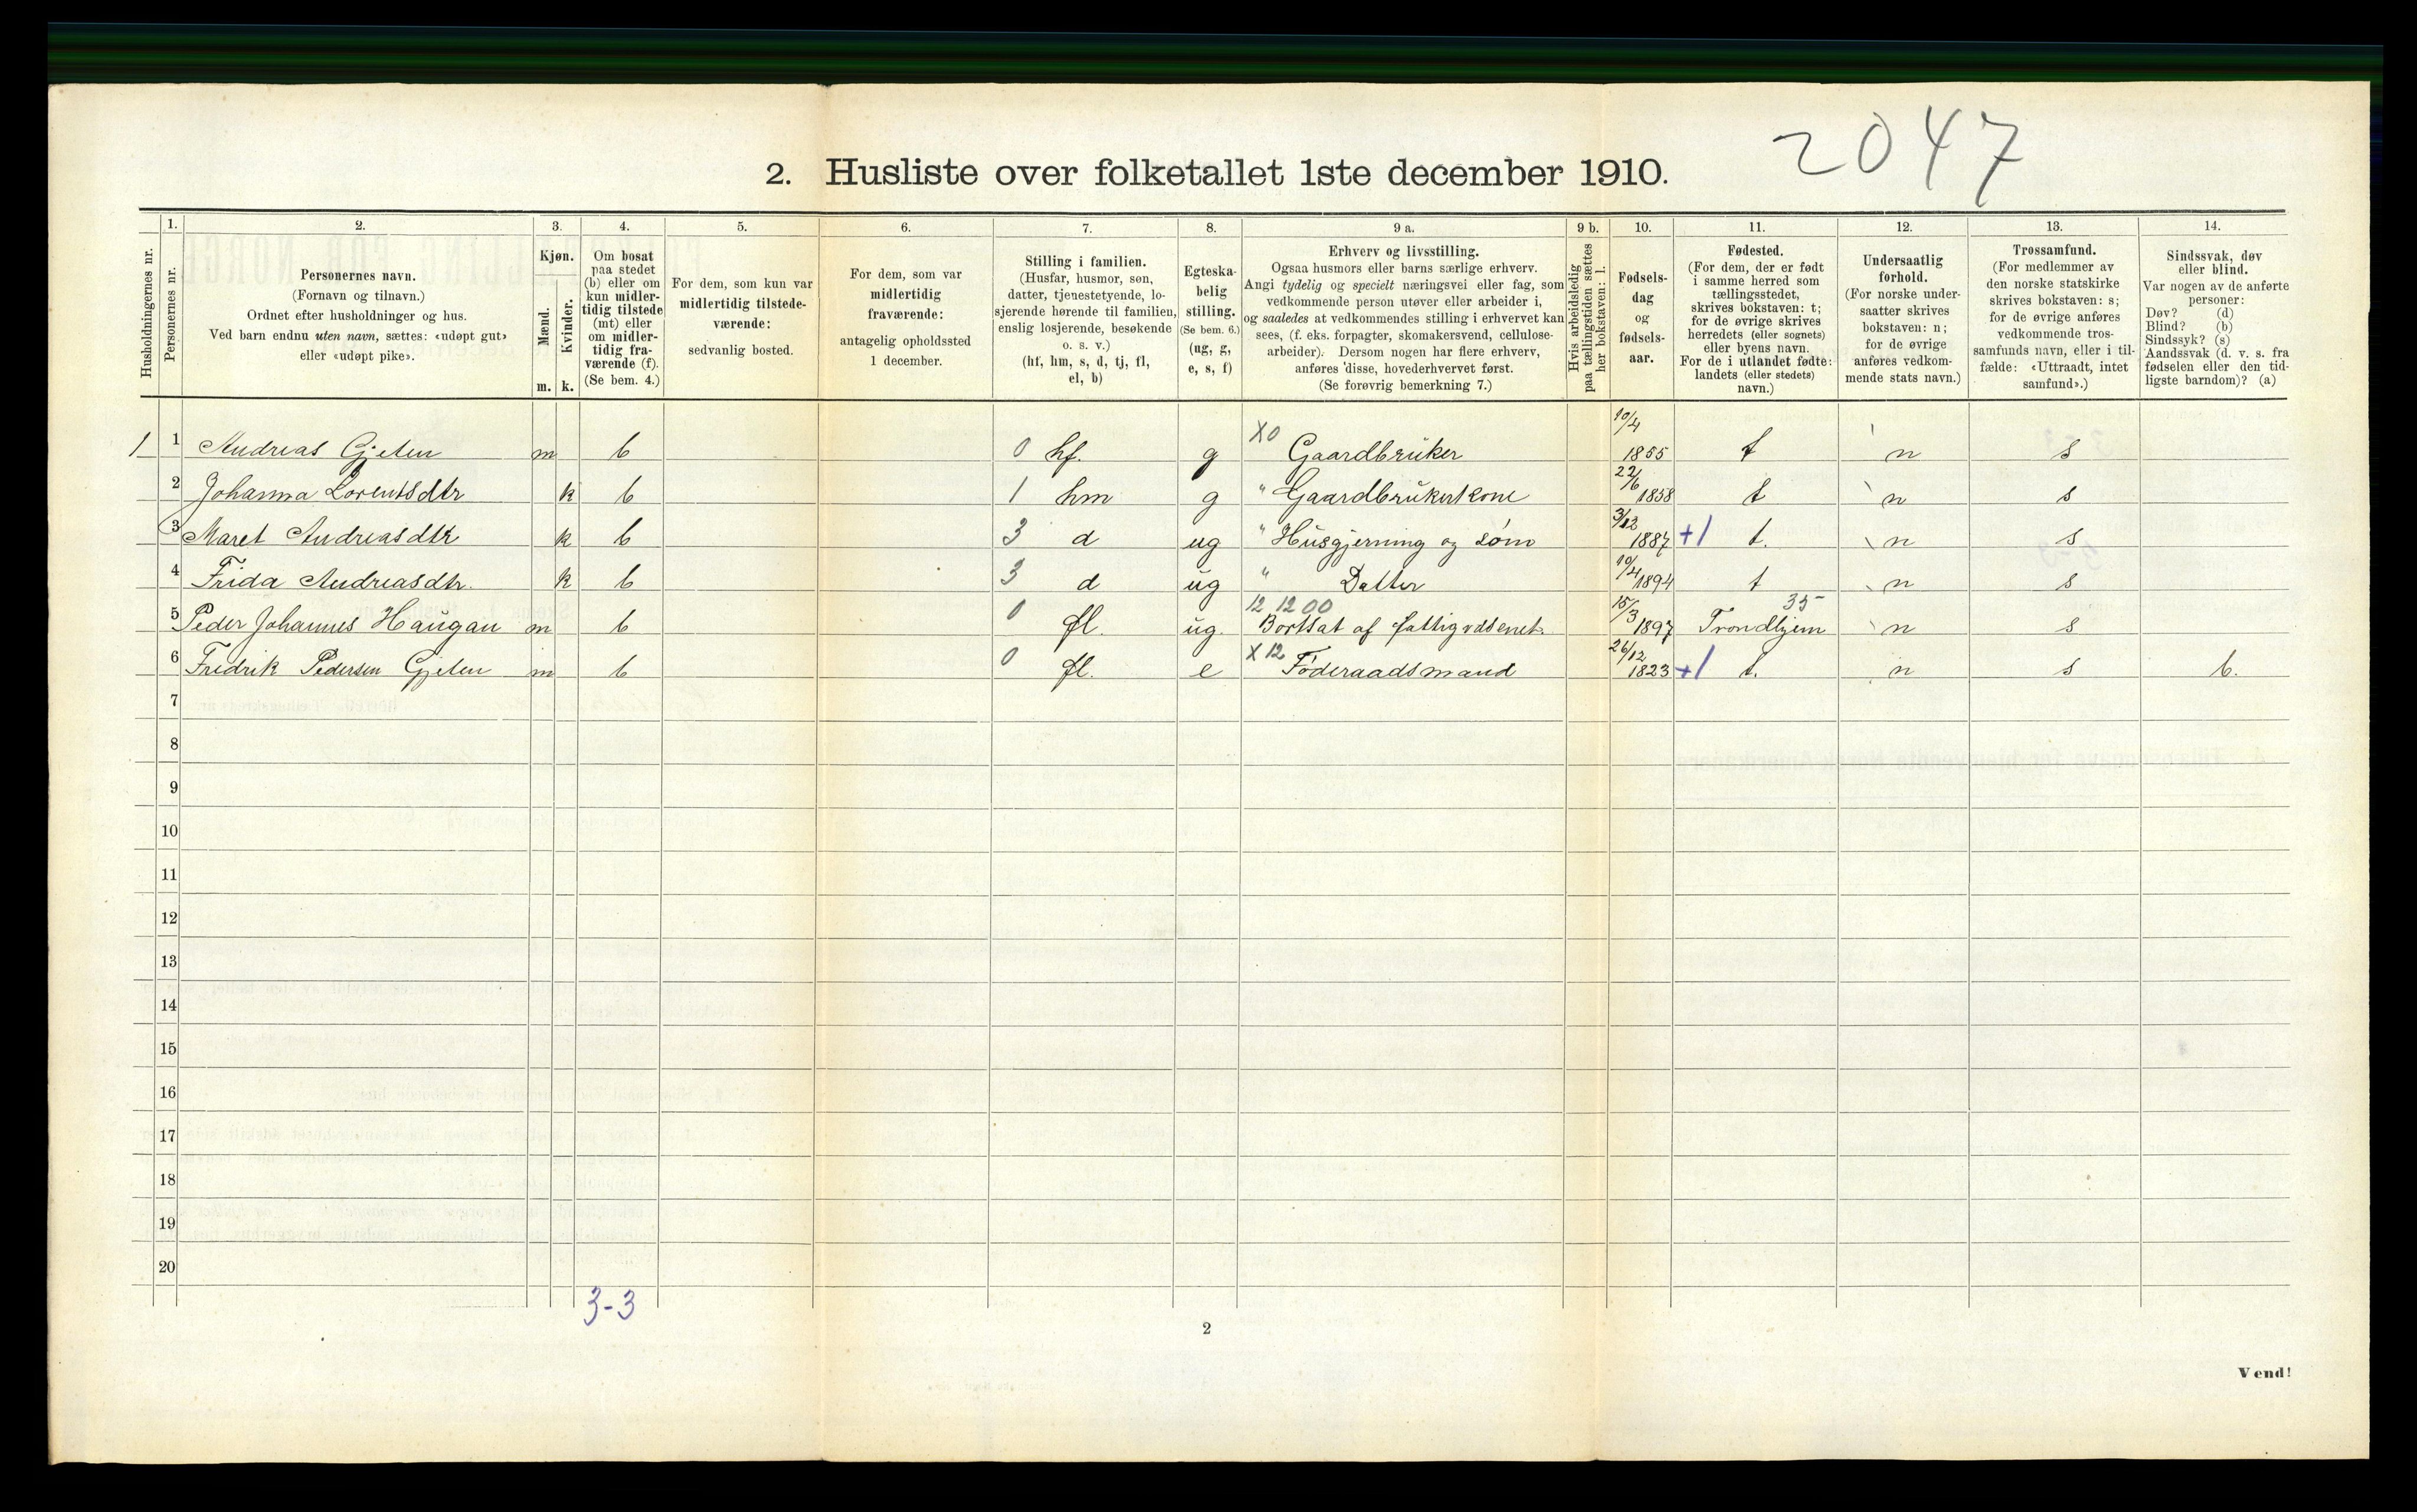 2047
2. Husliste over folketallet 1ste december 1910.
1. 2. 3. 4. 5. 6. 7. 8. 9 a. 9 b. 10. 11. 12. 13. 14.
Husholdningernes nr.
Personernes nr.
Personernes navn.
(Fornavn og tilnavn.)
Ordnet efter husholdninger og hus.
Ved barn endnu uten navn, sættes: «udøpt gut»
eller «udøpt pike».
Kjøn.
Mænd.
Kvinder.
m. k.
Om bosat
paa stedet
(b) eller om
kun midler-
tidig tilstede
(mt) eller
om midler-
tidig fra-
værende (f).
(Se bem. 4.)
For dem, som kun var
midlertidig tilstede-
værende:
sedvanlig bosted.
For dem, som var
midlertidig
fraværende:
antagelig opholdssted
1 december.
Stilling i familien.
(Husfar, husmor, søn,
datter, tjenestetyende, lo-
sjerende hørende til familien,
enslig losjerende, besøkende
o. s. v.)
(hf, hm, s, d, tj, fl,
el, b)
Egteska-
belig
stilling.
(Se bem. 6.)
(ug, g,
e, s, f)
Erhverv og livsstilling.
Ogsaa husmors eller barns særlige erhverv.
Angi tydelig og specielt næringsvei eller fag, som
vedkommende person utøver eller arbeider i,
og saaledes at vedkommendes stilling i erhvervet kan
sees, (f. eks. forpagter, skomakersvend, cellulose-
arbeider). Dersom nogen har flere erhverv,
anføres disse, hovederhvervet først.
(Se forøvrig bemerkning 7.)
Hvis arbeidsledig
paa tællingstiden sættes
her bokstaven: l.
Fødsels-
dag
og
fødsels-
aar.
Fødested.
(For dem, der er født
i samme herred som
tællingsstedet,
skrives bokstaven: t;
for de øvrige skrives
herredets (eller sognets)
eller byens navn.
For de i utlandet fødte:
landets (eller stedets)
navn.)
Undersaatlig
forhold.
(For norske under-
saatter skrives
bokstaven: n;
for de øvrige
anføres vedkom-
mende stats navn.)
Trossamfund.
(For medlemmer av
den norske statskirke
skrives bokstaven: s;
for de øvrige anføres
vedkommende tros-
samfunds navn, eller i til-
fælde: «Uttraadt, intet
samfund».)
Sindssvak, døv
eller blind.
Var nogen av de anførte
personer:
Døv? (d)
Blind? (b)
Sindssyk? (s)
Aandssvak (d. v. s. fra
fødselen eller den tid-
ligste barndom)? (a)
1 1 Andreas Gjeten m b 0 hf. g X0 Gaardbruker 10/4 1855 t n s
2 Johanna Lorentsdtr k b 1 hm g " Gaardbrukerkone 22/6 1858 t n s
3 Maret Andreasdtr k b 3 d ug " Husgjerning og søm 3/12 1887 +1 t. n s
4 Frida Andreasdtr. k b 3 d ug " Datter 10/4 1894 t n s
5 Peder Johannes Haugan m b 0 fl. ug. 12 1200 Bortsat af fattigvæsenet. 15/3 1897 35 Trondhjem n s
6 Fredrik Pedersen Gjeten m b 0 fl. e X 12 Föderaadsmand 26/12 1823 +1 t. n s b.
7
8
9
10
11
12
13
14
15
16
17
18
19
20
3-3
2
Vend!